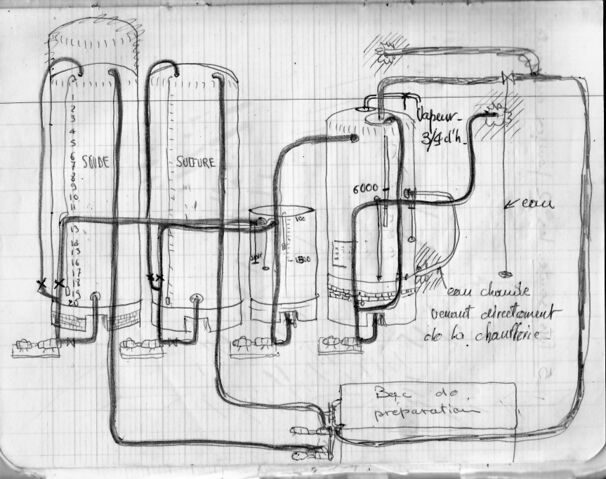 SOUDE
SULFURE
1
2
3
4
5
6
7
8
9
10
11
13
15
16
17
18
19
20
Vapeur
3/4 d'h.
6000
100
1500
eau
eau chaude
venant directement
de la chaufferie
Bac de
préparation